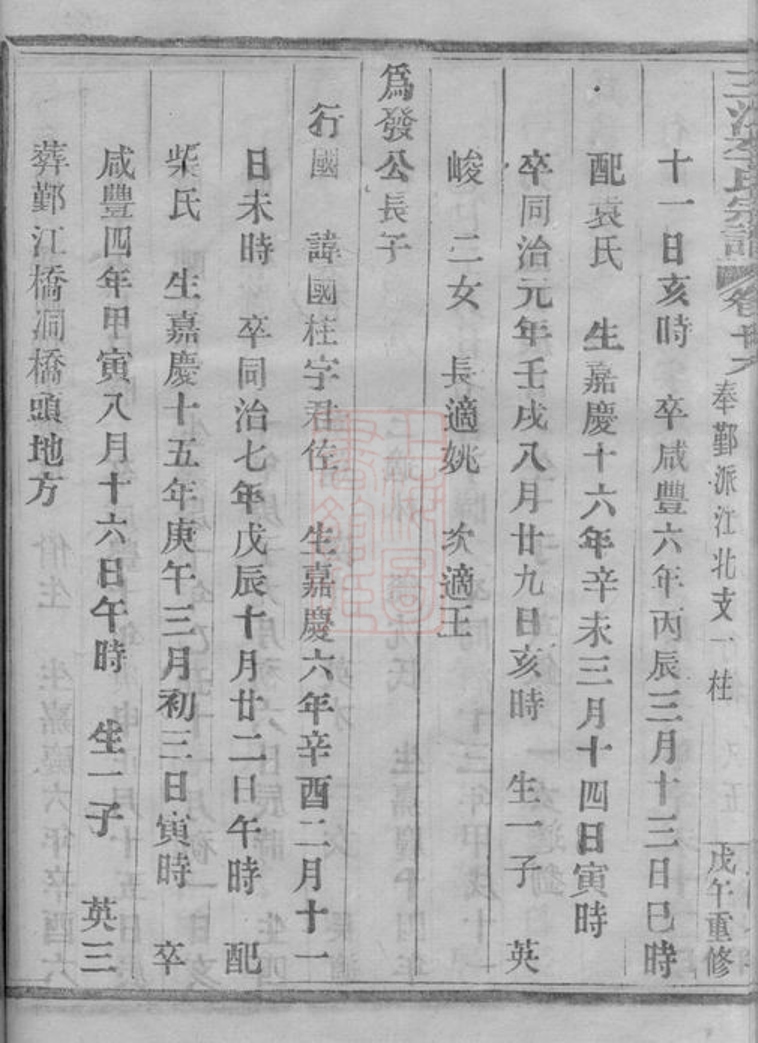 三江李氏宗譜 卷 奉鄞派江北支一柱 戊午重修
十一日亥時 卒咸豐六年丙辰三月十三日巳時
配袁氏 生嘉慶十六年辛未三月十四日寅時
卒同治元年壬戌八月廿九日亥時 生一子 英
峻 二女 長適姚 次適王
為發公長子
行國 諱國柱字君佐 生嘉慶六年辛酉二月十一
日未時 卒同治七年戊辰十月廿二日午時 配
柴氏 生嘉慶十五年庚午三月初三日寅時 卒
咸豐四年甲寅八月十六日午時 生一子 英三
葬鄞江橋洞橋頭地方